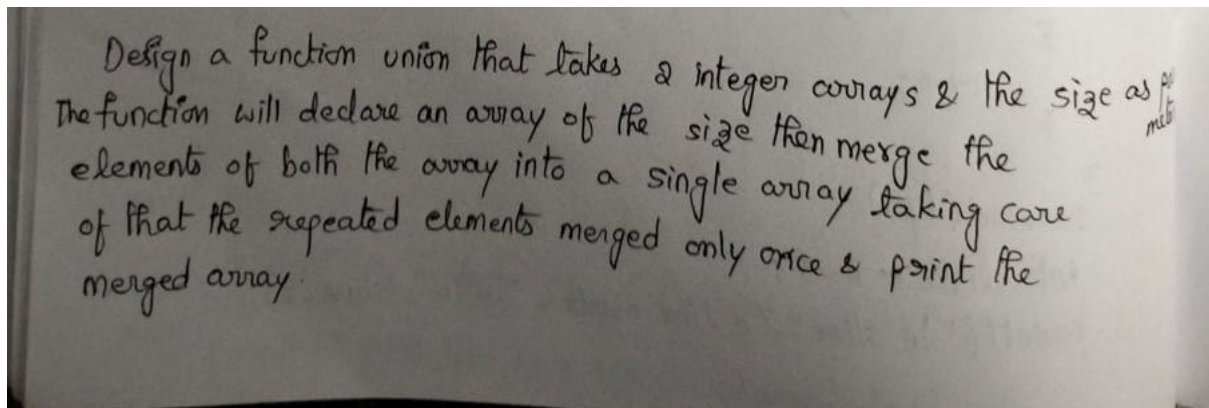 Design a function union that takes 2 integer arrays & the size as
The function will declare an array of the size then merge the
elements of both the array into a single array taking care
of that the repeated elements merged only once & print the
merged array.